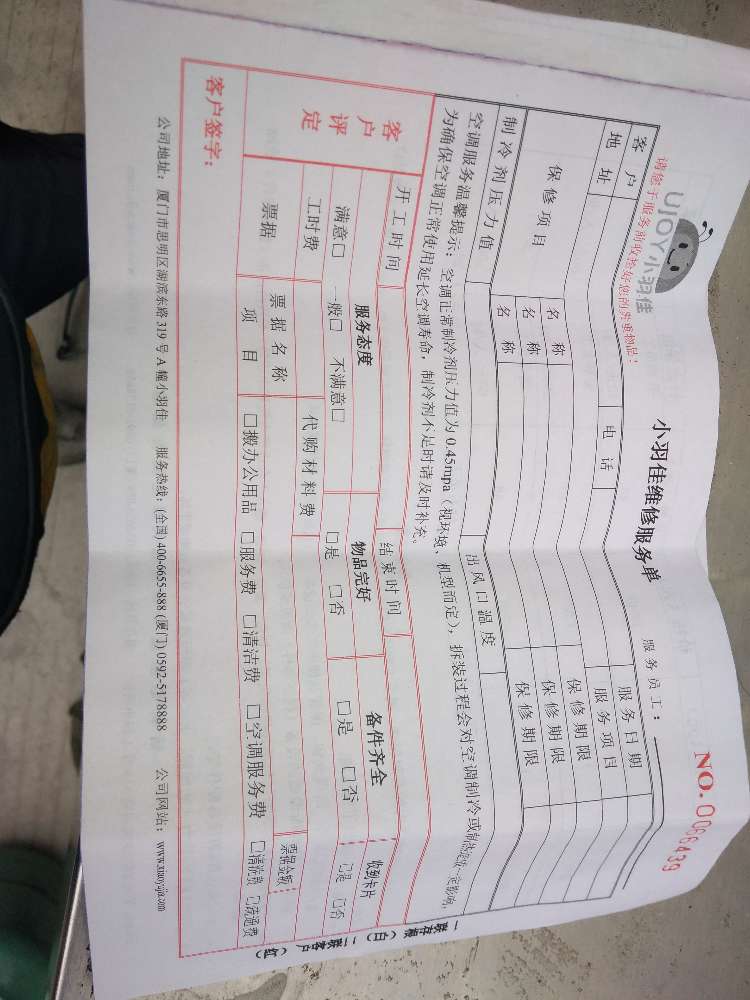 UJOY小羽佳
小羽佳维修服务单
NO. 0066439
请您于服务前收捡好您的贵重物品!
服务员工:
客户 电话 服务日期
地址 服务项目
保修项目 名称 保修期限
名称 保修期限
名称 保修期限
制冷剂压力值 出风口温度
空调服务温馨提示:空调正常制冷剂压力值为0.45mpa(视环境、机型而定),拆装过程会对空调制冷或
为确保空调正常使用延长空调寿命,制冷剂不足时请及时补充。
开工时间 结束时间
客户评定 服务态度 物品完好 备件齐全 收到卡片
满意□ 一般□ 不满意□ □是 □否 □是 □否 □是 □否
工时费 代购材料费
票据 票据名称 票据金额
项目 □搬办公用品 □服务费 □清洁费 □空调服务费 □清洗费 □疏通费
客户签字:
公司地址:厦门市思明区湖滨东路319号A幢小羽佳 服务热线:(全国)400-6655-888 (厦门)0592-5178888 公司网站:www.xiaoyujia.com
一联存根(白) 二联客户(红)